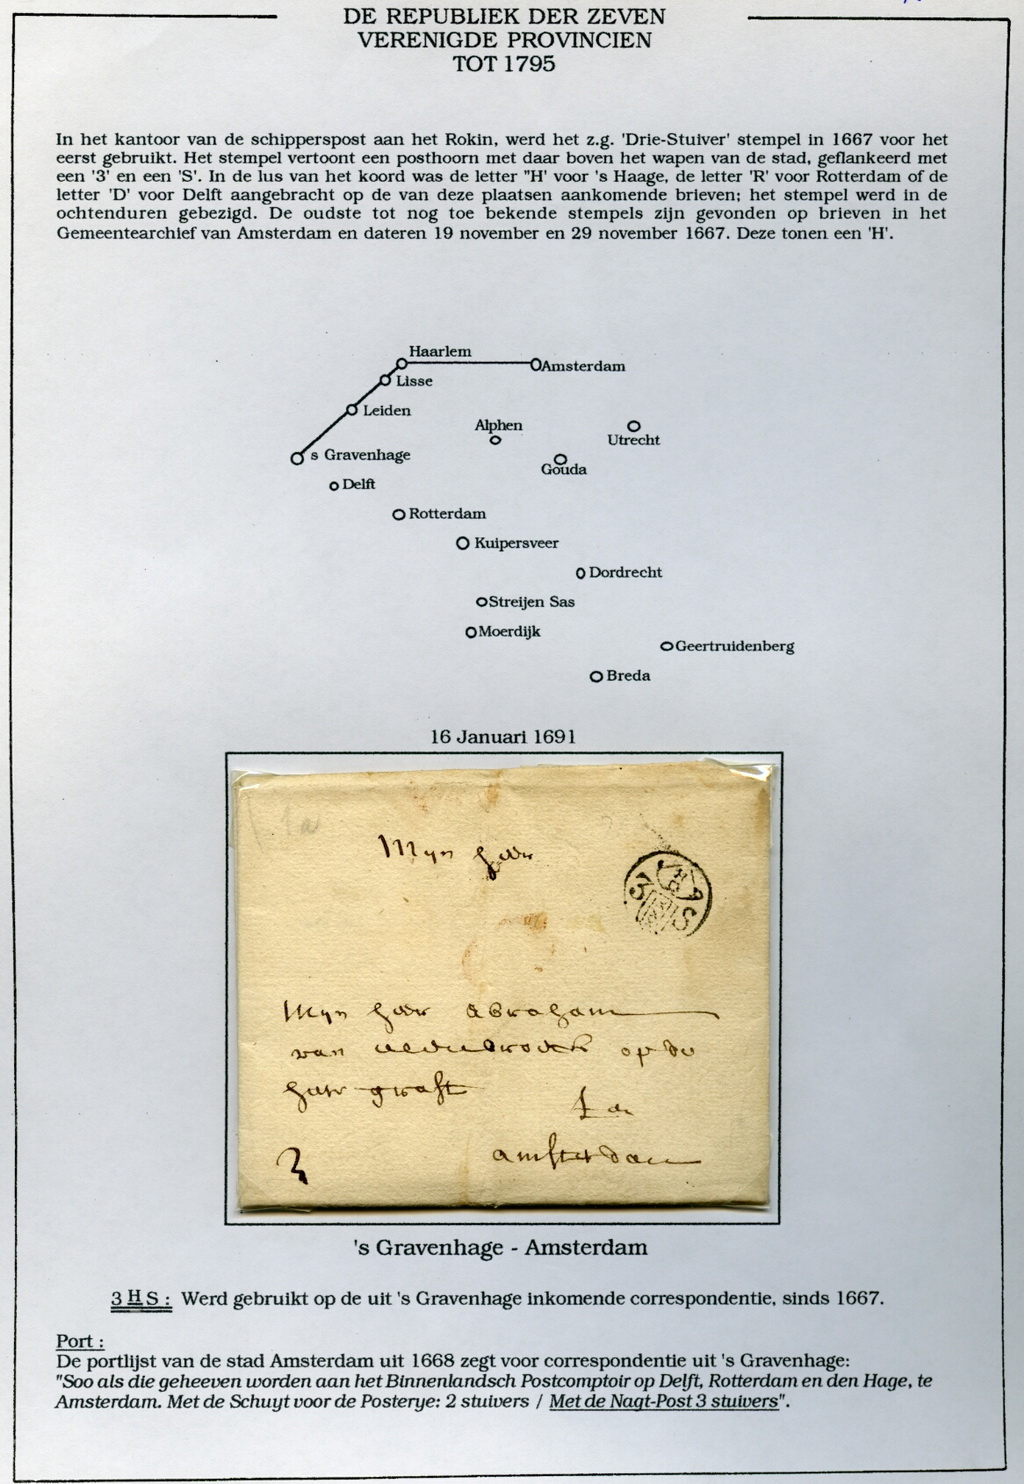 DE REPUBLIEK DER ZEVEN
VERENIGDE PROVINCIEN
TOT 1795
In het kantoor van de schipperspost aan het Rokin, werd het z.g. 'Drie-Stuiver' stempel in 1667 voor het
eerst gebruikt. Het stempel vertoont een posthoorn met daar boven het wapen van de stad, geflankeerd met
een '3' en een 'S'. In de lus van het koord was de letter "H' voor 's Haage, de letter 'R' voor Rotterdam of de
letter 'D' voor Delft aangebracht op de van deze plaatsen aankomende brieven; het stempel werd in de
ochtenduren gebezigd. De oudste tot nog toe bekende stempels zijn gevonden op brieven in het
Gemeentearchief van Amsterdam en dateren 19 november en 29 november 1667. Deze tonen een 'H'.
Haarlem
Amsterdam
Lisse
Leiden
Alphen
Utrecht
s Gravenhage
Gouda
Delft
Rotterdam
Kuipersveer
Dordrecht
Streijen Sas
Moerdijk
Geertruidenberg
Breda
16 Januari 1691
1a
Mijn heer
3 H S
Mijn heer abraham
van op de
here graft
ta
amsterdam
3
's Gravenhage - Amsterdam
3 H S : Werd gebruikt op de uit 's Gravenhage inkomende correspondentie, sinds 1667.
Port :
De portlijst van de stad Amsterdam uit 1668 zegt voor correspondentie uit 's Gravenhage:
"Soo als die geheeven worden aan het Binnenlandsch Postcomptoir op Delft, Rotterdam en den Hage, te
Amsterdam. Met de Schuyt voor de Posterye: 2 stuivers / Met de Nagt-Post 3 stuivers".